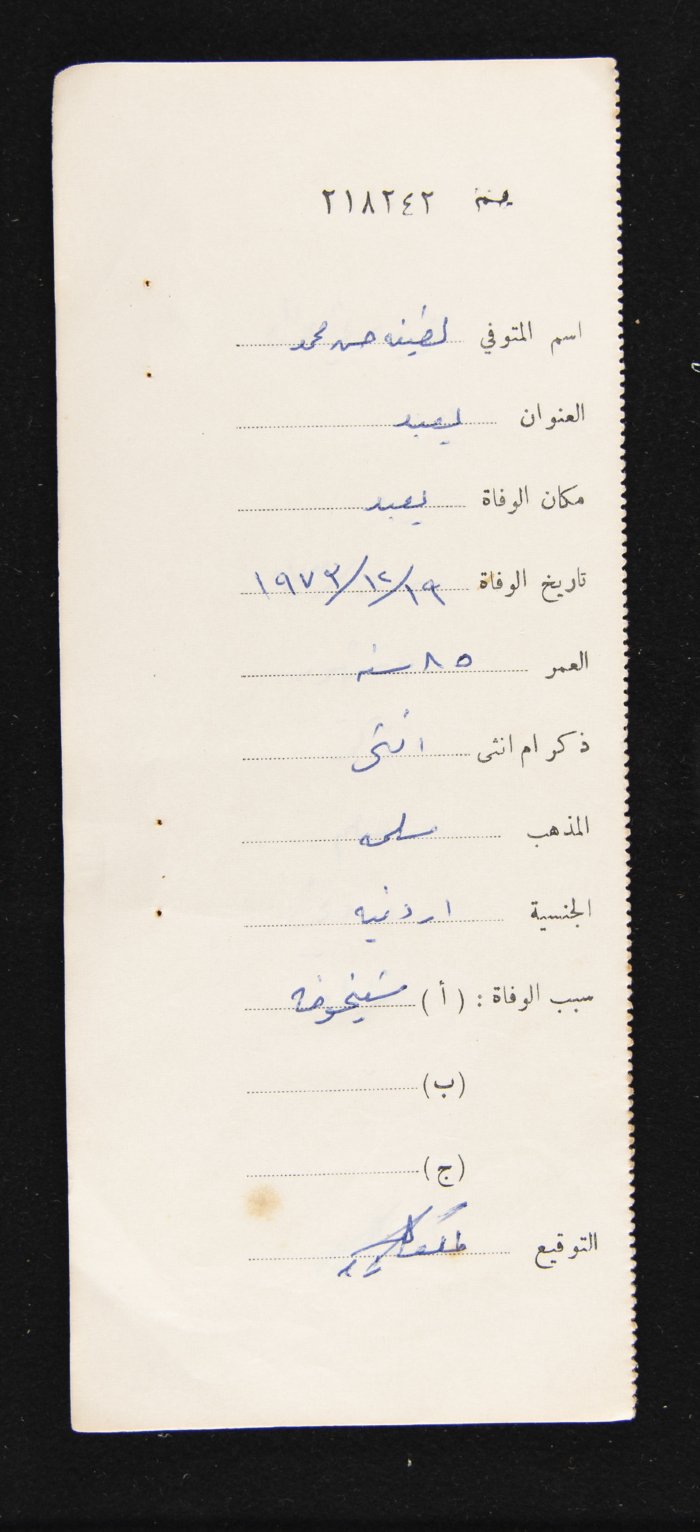 جنم ٢١٨٢٤٢
اسم المتوفي لطيفه حسن محمد
العنوان يعبد
مكان الوفاة يعبد
تاريخ الوفاة ١٩/١٢/١٩٧٣
العمر ٨٥ سنه
ذكر ام انثى انثى
المذهب مسلمه
الجنسية اردنيه
سبب الوفاة : (أ) شيخوخه
(ب)
(ج)
التوقيع